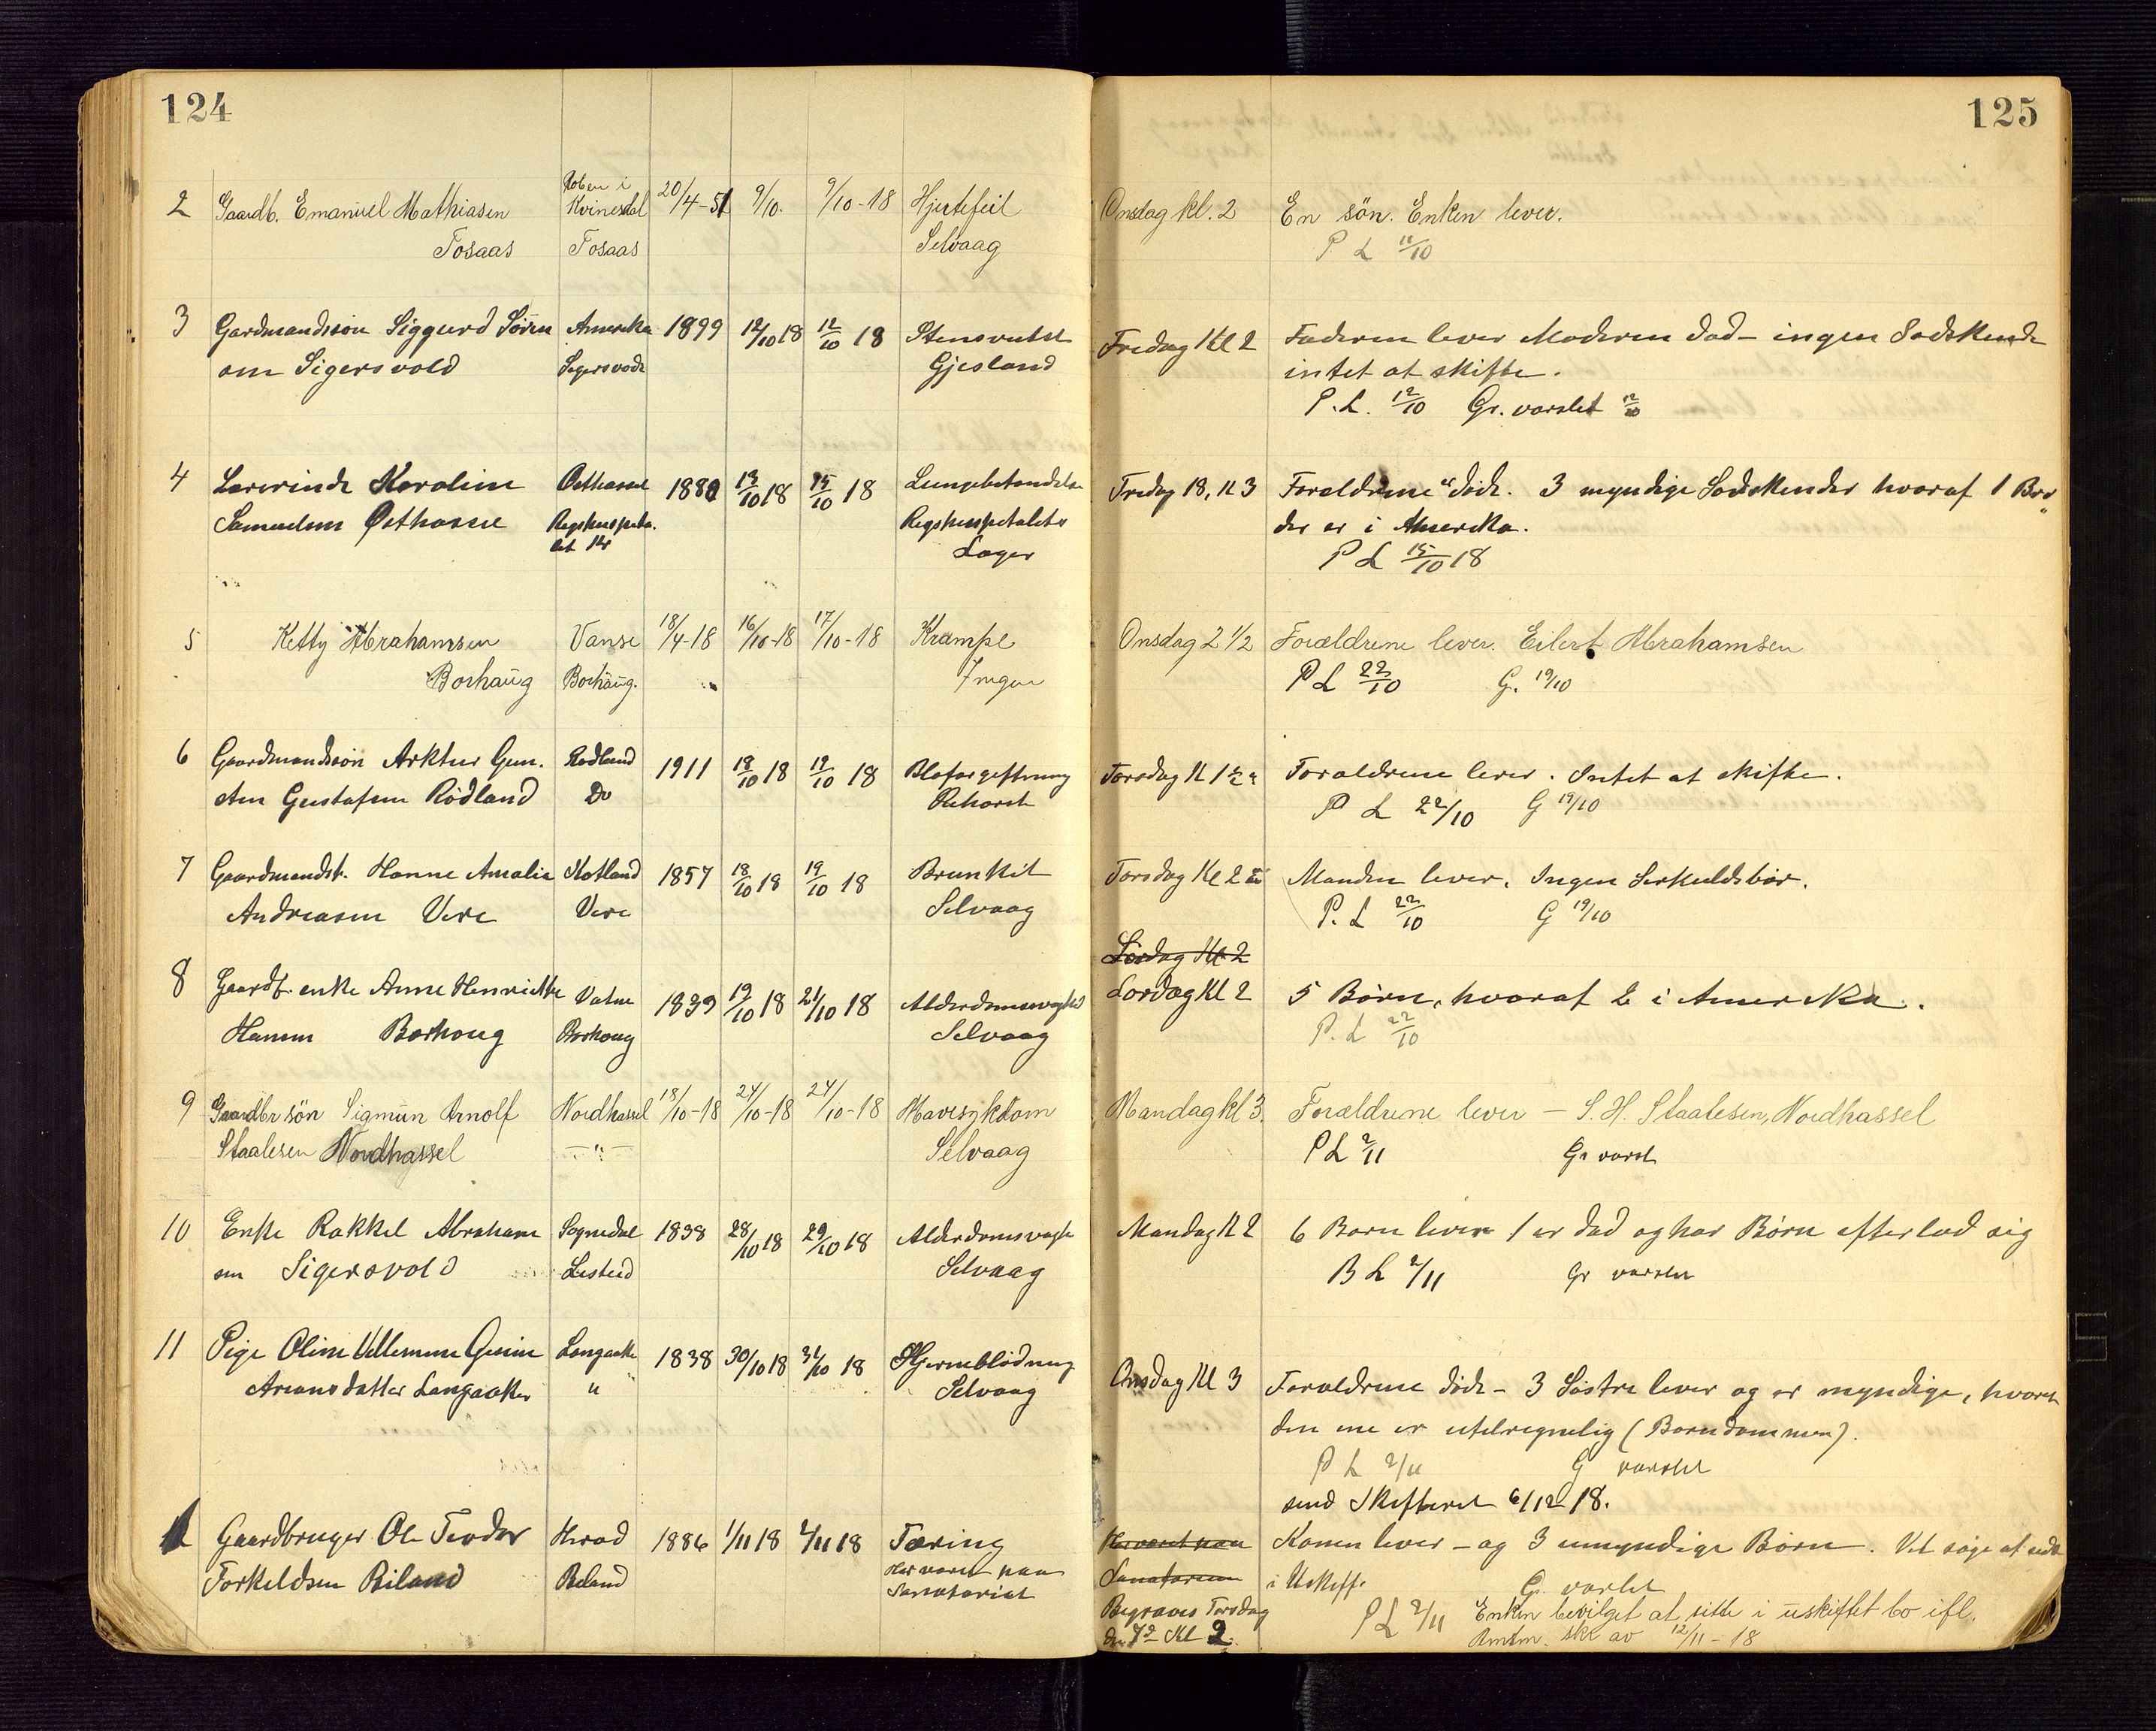 124
125
2 Gaardb. Emanuel Mathiasen Kvinesdal 20/4-51 9/10. 9/10-18 Hjertefeil Onsdag kl. 2 En søn. Enken lever.
Tosaas Tosaas Selvaag P L 11/10
3 Gardmandssøn Siggurd Søren Amerika 1899 12/10 18 12/10 18 Fredag Kl 2 Faderen lever Moderen død - ingen Sødskende
sen Sigersvold Gjesland intet at skifte.
P.L. 12/10 Gr. varslet 12/10
4 Lærerinde Karoline Østhassel 1880 13/10 18 15/10 18 Lungebetændelse Fredag 18, Kl 3 Forældrene døde. 3 myndige Sødskender hvoraf 1 Bro
Samuelsen Østhassel Rigshospitalets der er i Amerika.
Læger P L 15/10 18
5 Ketty Abrahamsen Vanse 18/4-18 16/10-18 17/10-18 Krampe Onsdag 2 1/2 Forældrene lever. Eilert Abrahamsen
Borhaug Borhaug. Ingen P L 22/10 G. 19/10
6 Gaardmandssøn Arktur Gun. Rødland 1911 18/10 18 19/10 18 Blofargeftning Torsdag Kl 1 1/2 Forældrene lever. Intet at skifte.
Gustafsen Rødland Do P L 22/10 G 19/10
7 Gaardmandsk. Hanne Amalie Kotland 1857 18/10 18 19/10 18 Brunkit Torsdag Kl 2 Manden lever. Ingen Serkuldsbør.
Andreasen Vere Vere Selvaag P. L 22/10 G 19/10
Lørdag Kl 2
8 Gaardb. enke Anne Henriette Vatne 1839 19/10 18 21/10 18 Alderdomssvaghed Lørdag Kl 2 5 Børn, hvoraf 2 i Amerika.
Hansen Borhoug Borhoug Selvaag P. L 22/10
9 Gaardbr søn Sigmun Arnolf Nordhassel 18/10-18 24/10-18 24/10-18 Mavesykdom Mandag kl 3. Forældrene lever — S. H. Staalesen, Nordhassel
Staalesen Nordhassel —"— Selvaag P L 2/11 Gr varsl
10 Enke Rakkel Abraham Sognedal 1838 28/10 18 29/10 18 Alderdomsvagh Mandag Kl 2 6 Børn lever 1 er død og har Børn efterlad sig
sen Sigersvold Selvaag B L 2/11 Gr varslet
11 Pige Oline Villemine Gurine Langaaker 1838 30/10 18 31/10 18 Hjerneblødning Onsdag Kl 3 Forældrene døde - 3 Søstre lever og er myndige, hvoraf
Arians datter Langaaker " Selvaag den ene er utelregnelig (Barndommen).
P L 2/11 G varslet
send Skifteret 6/12-18.
1 Gaardbruger Ole Teodor Herad 1886 1/11 18 2/11 18 Tæring Har været paa Konen lever - og 3 umyndige Børn. Vil søge at sidde
Torkeldsen Biland Beland Har været paa Sanatoriet Sanatorium i Uskift. Gr. varslet
Begraves Torsdag P L 2/11 Enken bevilget at sitte i uskiftet bo ifl.
den 7de Kl 2. Amtm. skr av 12/11-18